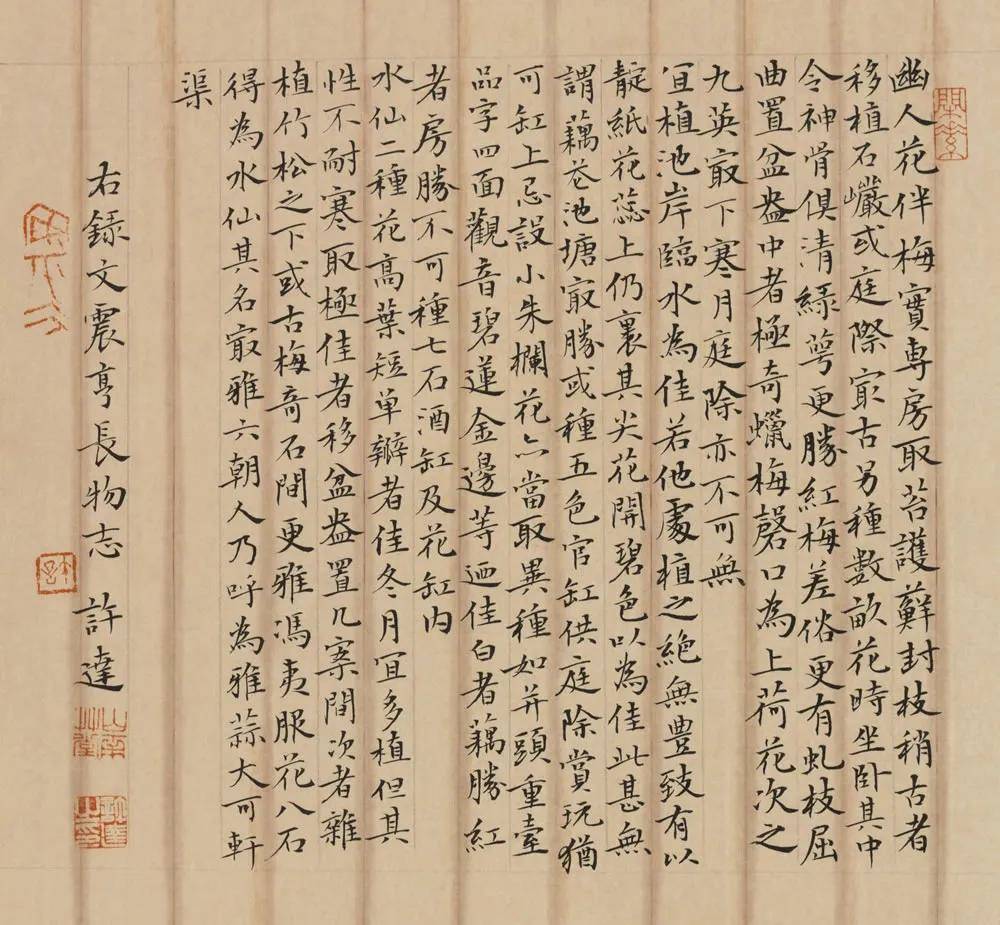 幽人花伴梅實専房取苔護蘚封枝稍古者
移植石巖或庭際冣古另種數畝花時坐卧其中
令神骨俱清綠萼更勝紅梅差俗更有虬枝屈
曲置盆盎中者極奇蠟梅磬口為上荷花次之
九英冣下寒月庭除亦不可無
宜植池岸臨水為佳若他處植之絕無豊致有以
靛紙花蕊上仍裹其尖花開碧色以為佳此甚無
謂藕花池塘冣勝或種五色官缸供庭除賞玩猶
可缸上忌設小朱欄花亦當取異種如并頭重臺
品字四面觀音碧蓮金邊等迺佳白者藕勝紅
者房勝不可種七石酒缸及花缸內
水仙二種花高葉短单瓣者佳冬月宜多植但其
性不耐寒取極佳者移盆盎置几案間次者雜
植竹松之下或古梅奇石間更雅馮夷服花八石
得為水仙其名冣雅六朝人乃呼為雅蒜大可軒
渠
右錄文震亨長物志 許達